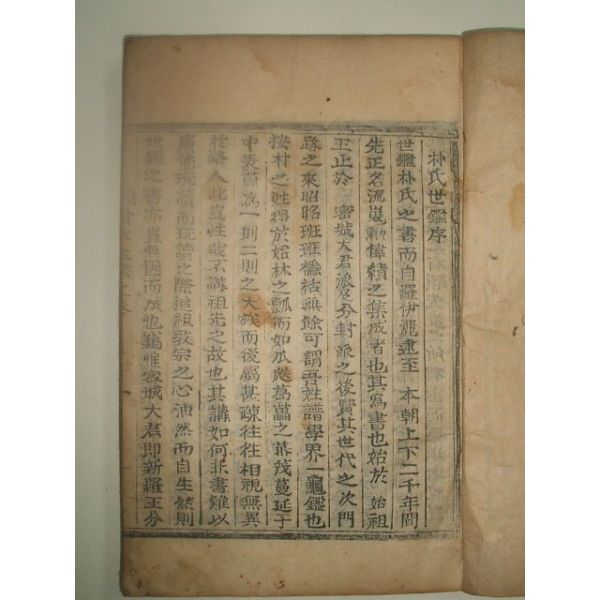 朴氏世鑑序
世鑑朴氏之書而自羅伊麗逮至 本朝上下二千年間
先正名流嵬勳偉績之集成者也其爲書也始於 始祖
王止於 密城大君派 分封派之後贒其世代之次門
路之來昭昭班班檃括無餘可謂吾姓譜學界一龜鑑也
按朴之姓得於始林之瓢而如瓜瓞葛藟之葉茂蔓延于
中表蔚爲一則二則之大族而後屬甚疎往往相視無異
於路人此豈性 不講祖先之故也其講如何非書難以
 而玩讀之際追祖敦宗之心沛然而自生然則
世鑑之書亦豈 因而成也竊惟密城大君即新羅王分